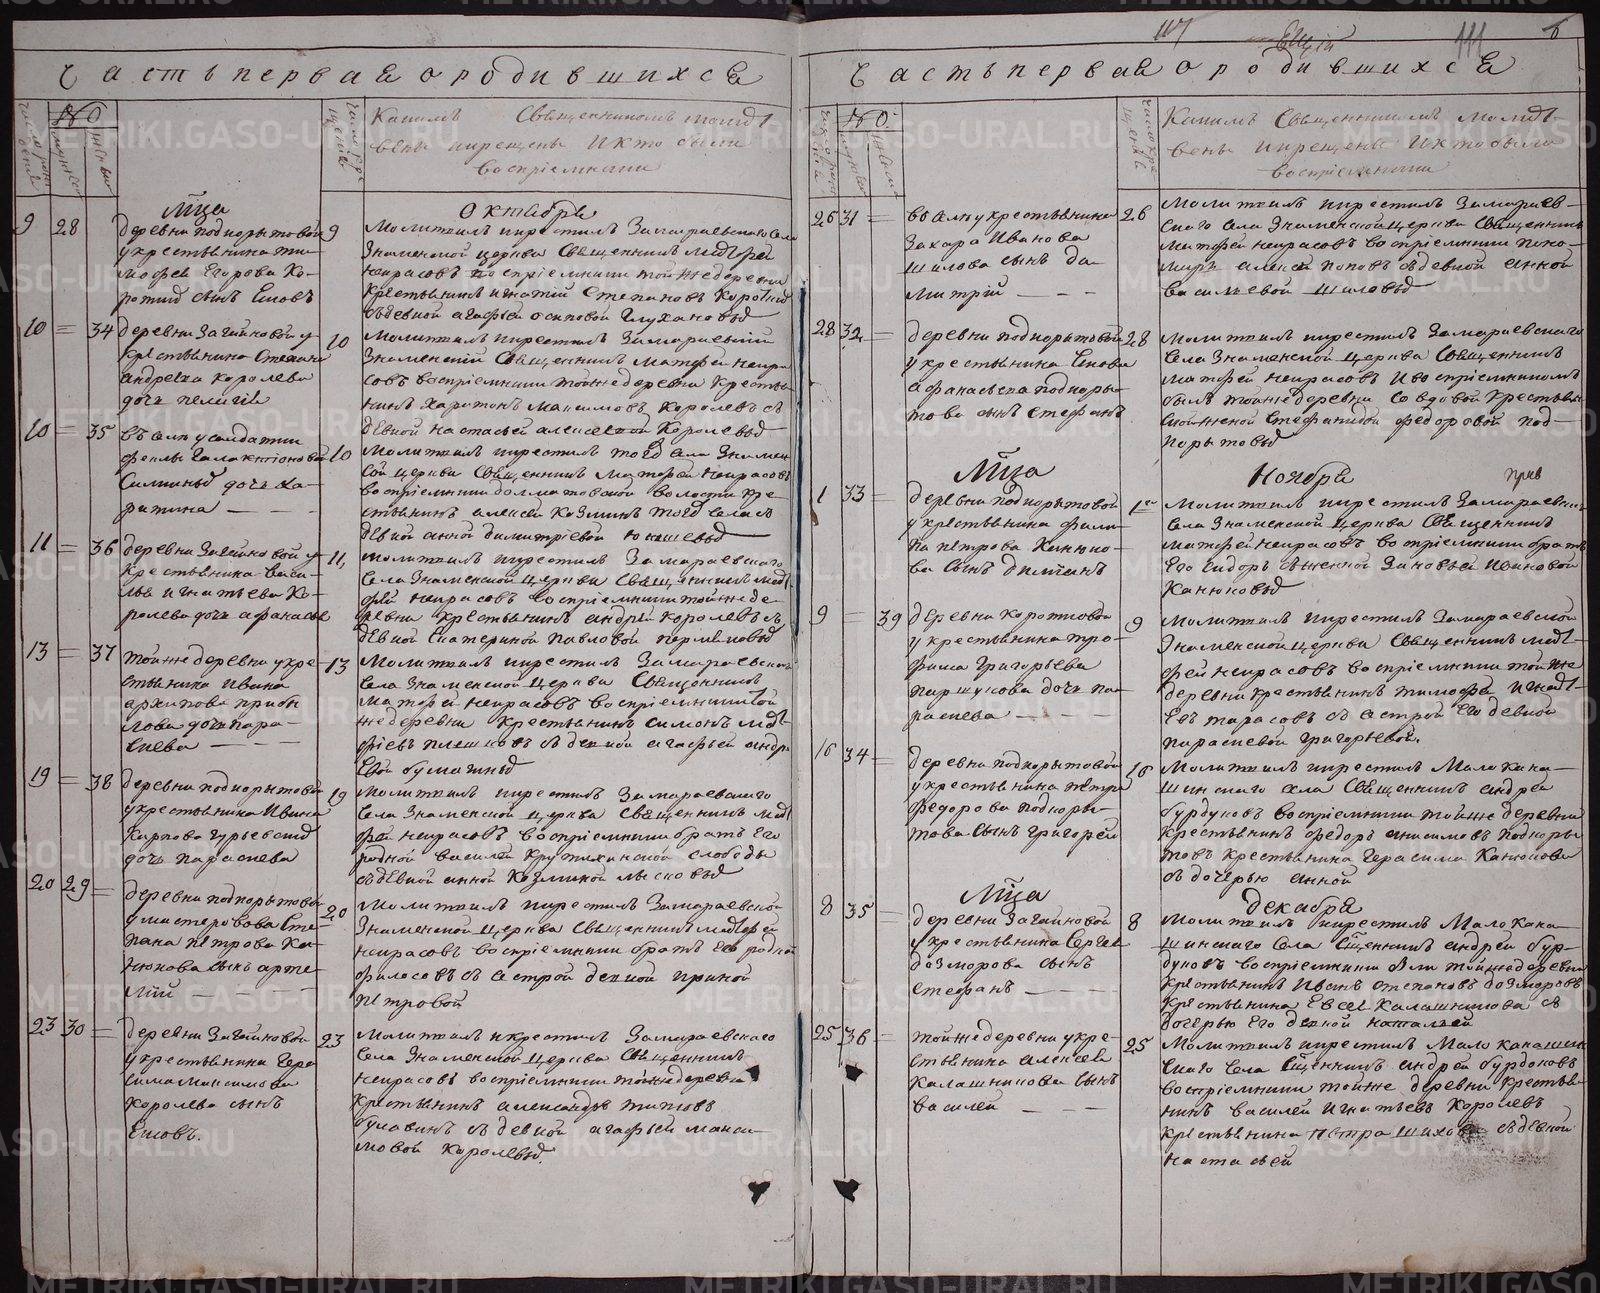 Часть первая о родившихся
№
Мца
Октября
9 28 деревни подкорытовой
у крестьянина Ти-
мофея Егорова Ко-
сынъ Ековъ
9 Молитвилъ и крестилъ Замараевскаго села
Знаменской церкви Священникъ Матфей
Некрасовъ воспріемники тойже деревни
Крестьянинъ Игнатій Степановъ
съ девкой Агафьей Осиповой Глухановыхъ
10 34 деревни Загайновой у
крестьянина Степана
Андреева Королева
дочь Пелагія
10 Молитвилъ и крестилъ Замараевскій
Знаменской Священникъ Матфей Некра
совъ воспріемники тойже деревни Крестья
нинъ Харитонъ Максимовъ Королевъ съ
девкой Настасьей Алексеевой Королевыхъ
10 35 въ селе у солдатки
Феклы Галактіоновой
дочь Ка-
рина
10 Молитвилъ и крестилъ того села Знамен
ской церкви Священникъ Матфей Некрасовъ
воспріемники Долматовской волости кре-
стьянинъ Алексей Козминъ того села съ
девкой Анной Димитріевой
11 36 деревни Загайновой у
крестьянина Васи-
лья Игнатьева Ко-
ролева дочь Афанасья
11 Молитвилъ и крестилъ Замараевскаго
села Знаменской церкви Священникъ Мат
фей Некрасовъ воспріемники тойже де-
ревни крестьянинъ Андрей Королевъ съ
девкой Екатериной Павловой
13 37 тойже деревни у кре-
стьянина Ивана
Архипова
лова дочь Пара-
скева
13 Молитвилъ и крестилъ Замараевскаго
села Знаменской церкви Священникъ
Матфей Некрасовъ воспріемники той
же деревни крестьянинъ Симонъ Мат-
фіевъ Плешковъ съ девкой Агафьей Андре
евой
19 38 деревни подкорытовой
у крестьянина Ивана
Карпова
дочь Параскева
19 Молитвилъ и крестилъ Замараевскаго
села Знаменской церкви Священникъ Мат
фей Некрасовъ воспріемники братъ его
родной Василей Крутихинской слободы
съ девкой Анной Козминой
20 29 деревни подкорытовой
у мастероваго Сте-
пана Петрова Ка-
нюкова сынъ Арте-
мій
20 Молитвилъ и крестилъ Замараевской
Знаменской церкви Священникъ Матфей
Некрасовъ воспріемники братъ его родной
съ сестрой девкой Ириной
Петровой
23 30 деревни Загайновой
у крестьянина Гера
сима Максимова
Королева сынъ
Ековъ.
23 Молитвилъ и крестилъ Замараевскаго
села Знаменской церкви Священникъ
Некрасовъ воспріемники тойже деревни
крестьянинъ Александръ Титовъ
съ девкой Агафьей Макси-
мовой Королевыхъ.
Часть первая о родившихся
№
Какимъ Священникомъ молит
вены и крещены и кто были
воспріемники
26 31 въ селе у крестьянина
Захара Иванова
Шилова сынъ Ди-
митрій
26 Молитвилъ и крестилъ Замараев-
скаго села Знаменской церкви Священникъ
Матфей Некрасовъ воспріемники
Алексей Поповъ съ девкой Анной
Васильевой Шиловыхъ
28 32 деревни подкорытовой
у крестьянина Екова
Афанасьева Подкоры-
това сынъ Стефанъ
28 Молитвилъ и крестилъ Замараевскаго
села Знаменской церкви Священникъ
Матфей Некрасовъ и воспріемникомъ
былъ тойже деревни со вдовой крестьян
ской женкой Стефанидой Федоровой Под-
корытовыхъ
Мца
Ноября
1 33 деревни подкорытовой
у крестьянина Фили-
па Петрова Канюко-
ва сынъ
1 Молитвилъ и крестилъ Замараевскаго
села Знаменской церкви Священникъ
Матфей Некрасовъ воспріемники братъ
его Сидоръ съ женкой Зиновьей Ивановой
Канюковыхъ
9 39 деревни Коротковой
у крестьянина Тро-
фима Григорьева
Паршукова дочь Па-
раскева
9 Молитвилъ и крестилъ Замараевской
Знаменской церкви Священникъ Мат-
фей Некрасовъ воспріемники тойже
деревни крестьянинъ Тимофей Игнать-
евъ Тарасовъ съ сестрой его девкой
Параскевой Григорьевой.
16 34 деревни подкорытовой
у крестьянина Петра
Федорова Подкоры-
това сынъ Григорей
16 Молитвилъ и крестилъ Мало Кана-
шинскаго села Священникъ Андрей
Бурдуковъ воспріемники тойже деревни
крестьянинъ Федоръ Анисимовъ Подкоры
товъ крестьянина Герасима Канюкова
съ дочерью Анной
Мца
Декабря
8 35 деревни Загайновой
у крестьянина Сергея
Дозморова сынъ
Стефанъ
8 Молитвилъ и крестилъ Мало Кана-
шинскаго села Сщенникъ Андрей Бур-
дуковъ воспріемники были тойже деревни
крестьянинъ Иванъ Степановъ Дозморовъ
крестьянина Евсея Калашникова съ
дочерью его девкой Натальей
25 36 тойже деревни у кре-
стьянина Алексея
Калашникова сынъ
Василей
25 Молитвилъ и крестилъ Мало Канашин
скаго села Сщенникъ Андрей Бурдоковъ
воспріемники тойже деревни крестья-
нинъ Василей Игнатьевъ Королевъ
крестьянина Петра съ девкой
Настасьей
METRIKI.GASO-URAL.RU